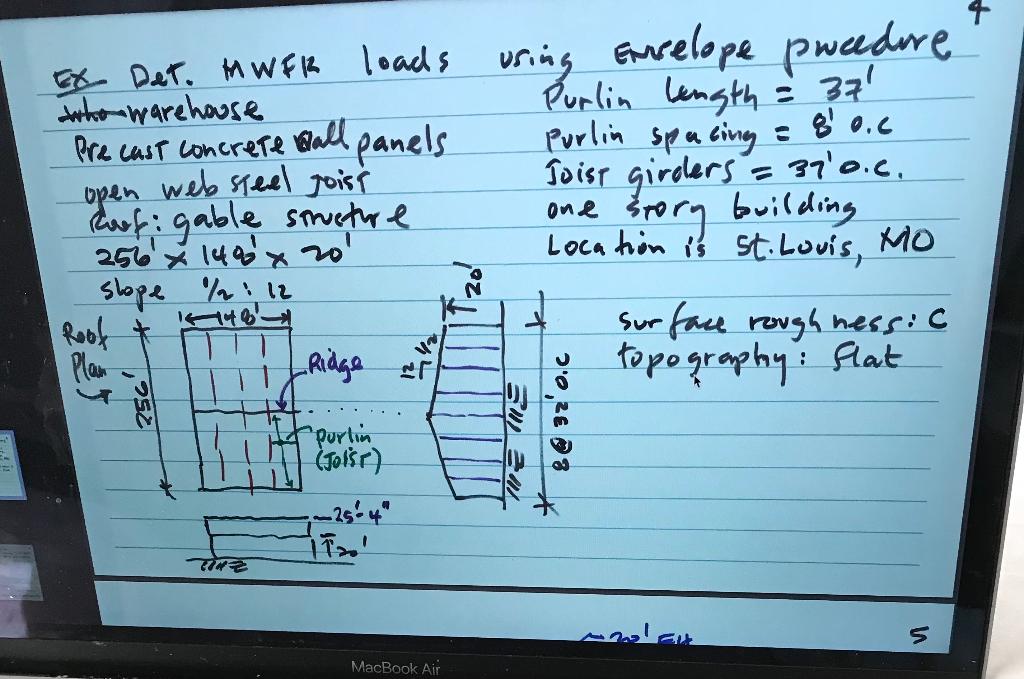 4
EX Det. MWFR loads using Envelope procedure
warehouse
Precast concrete wall panels
open web steel Joist
Roof: gable structure
256' x 148' x 20'
slope 1/2 : 12
Purlin length = 37'
Purlin spacing = 8' o.c
Joist girders = 37' o.c.
one story building
Location is St. Louis, MO
surface roughness: C
topography: flat
Roof
Plan
148'
256'
Ridge
purlin
(Joist)
25'-4"
20'
20'
12
1/2
8@ 32' o.c
20' EH
5
MacBook Air